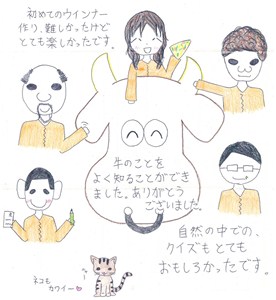 初めてのウインナー
作り、難しかったけど
とても楽しかったです。
牛のことを
よく知ることができ
ました。ありがとう
ございました。
自然の中での、
クイズもとても
おもしろかったです。
ネコも
カワイー